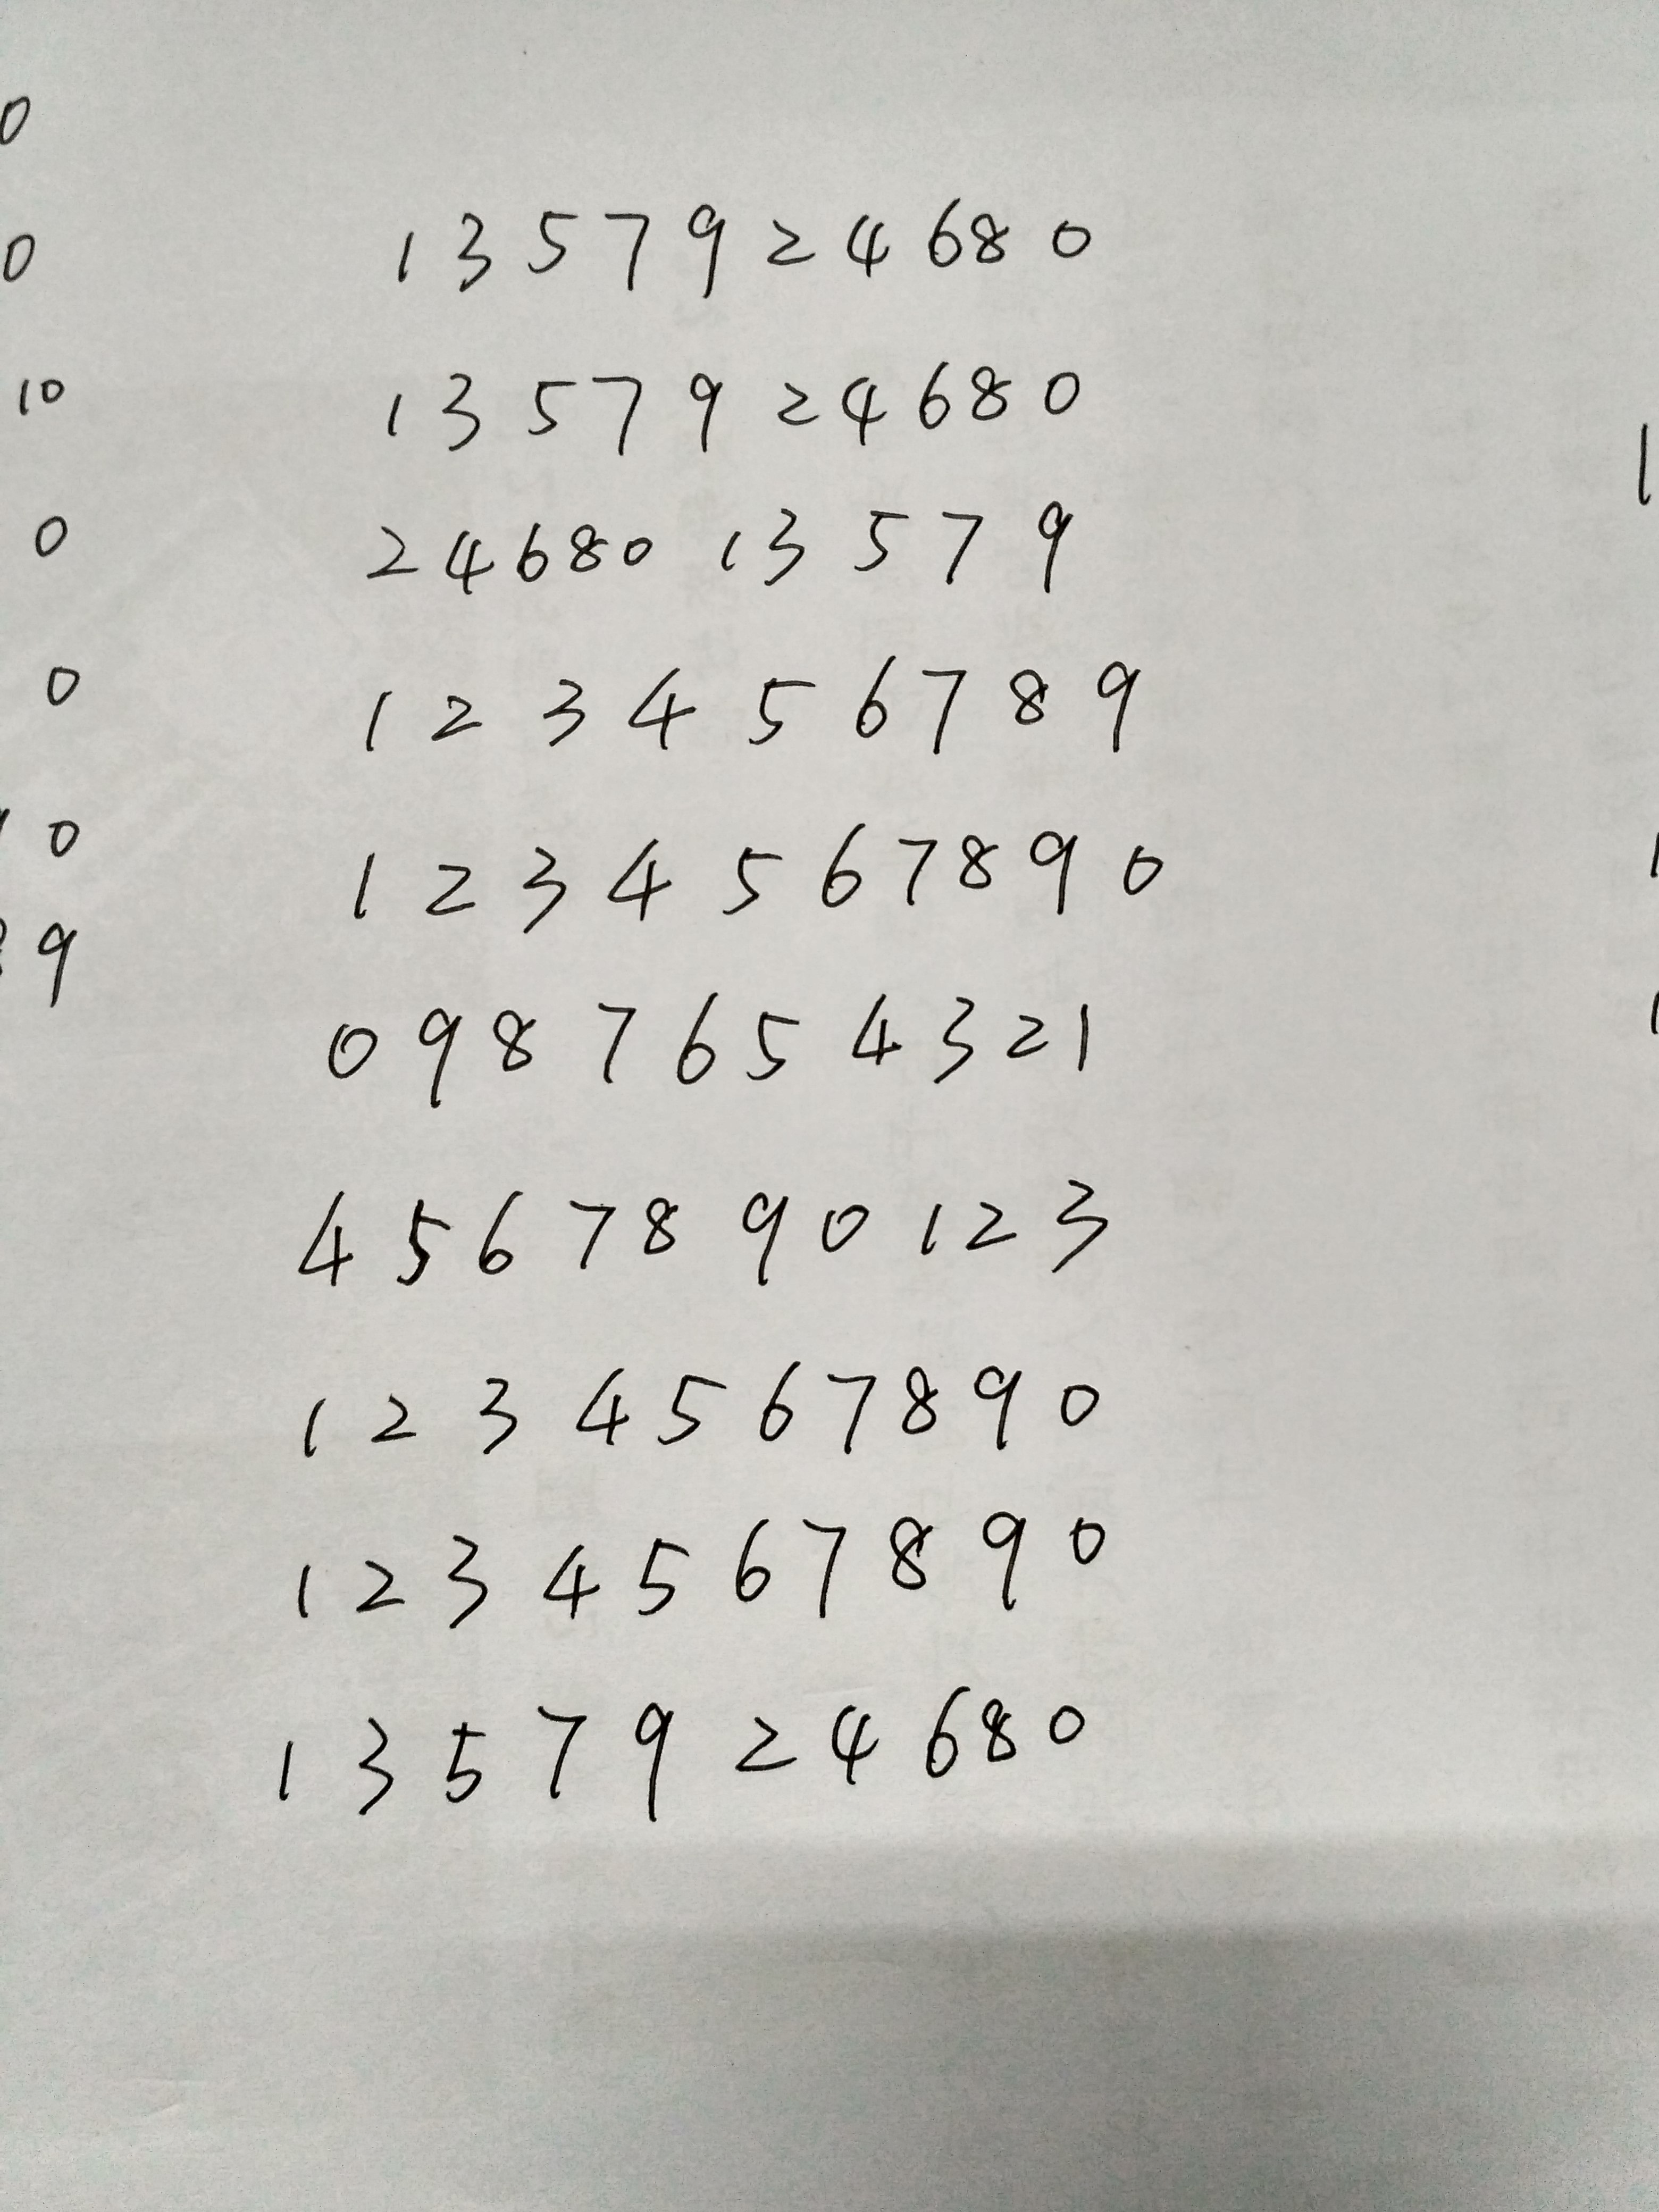 0
0
10
0
0
0
9
1 3 5 7 9 2 4 6 8 0
1 3 5 7 9 2 4 6 8 0
2 4 6 8 0 1 3 5 7 9
1 2 3 4 5 6 7 8 9
1 2 3 4 5 6 7 8 9 0
0 9 8 7 6 5 4 3 2 1
4 5 6 7 8 9 0 1 2 3
1 2 3 4 5 6 7 8 9 0
1 2 3 4 5 6 7 8 9 0
1 3 5 7 9 2 4 6 8 0
1